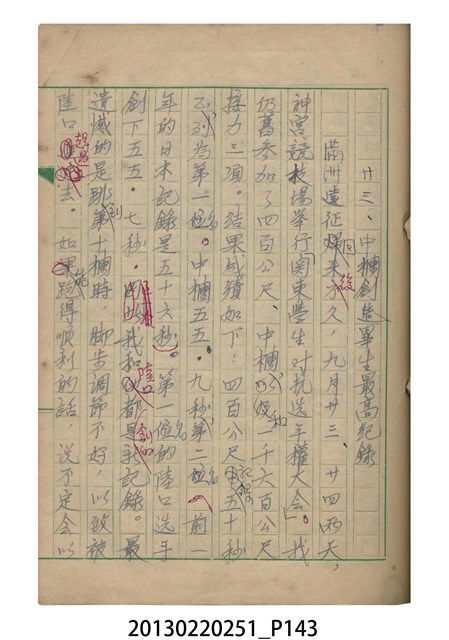 廿三、中欄創造畢生最高紀錄
滿州遠征回來後不久,九月廿三、廿四兩天,
神宮競技場舉行「関東學生対抗选手權大会」。我
仍舊參加了四百公尺、中欄和一千六百公尺
接力三項。結果成績如下:四百公尺記錄五十秒
正列為第一名。中欄五五.九秒第二名(前一
年的日本記錄是五十六秒)。第一名的陸口选手
創下五五.七秒。我和陸口創的都是新記錄。最
遺憾的是跳到第十欄時,脚步調節不好,以致被
陸口超去。如能跑得順利的話,说不定会以
20130220251_P143